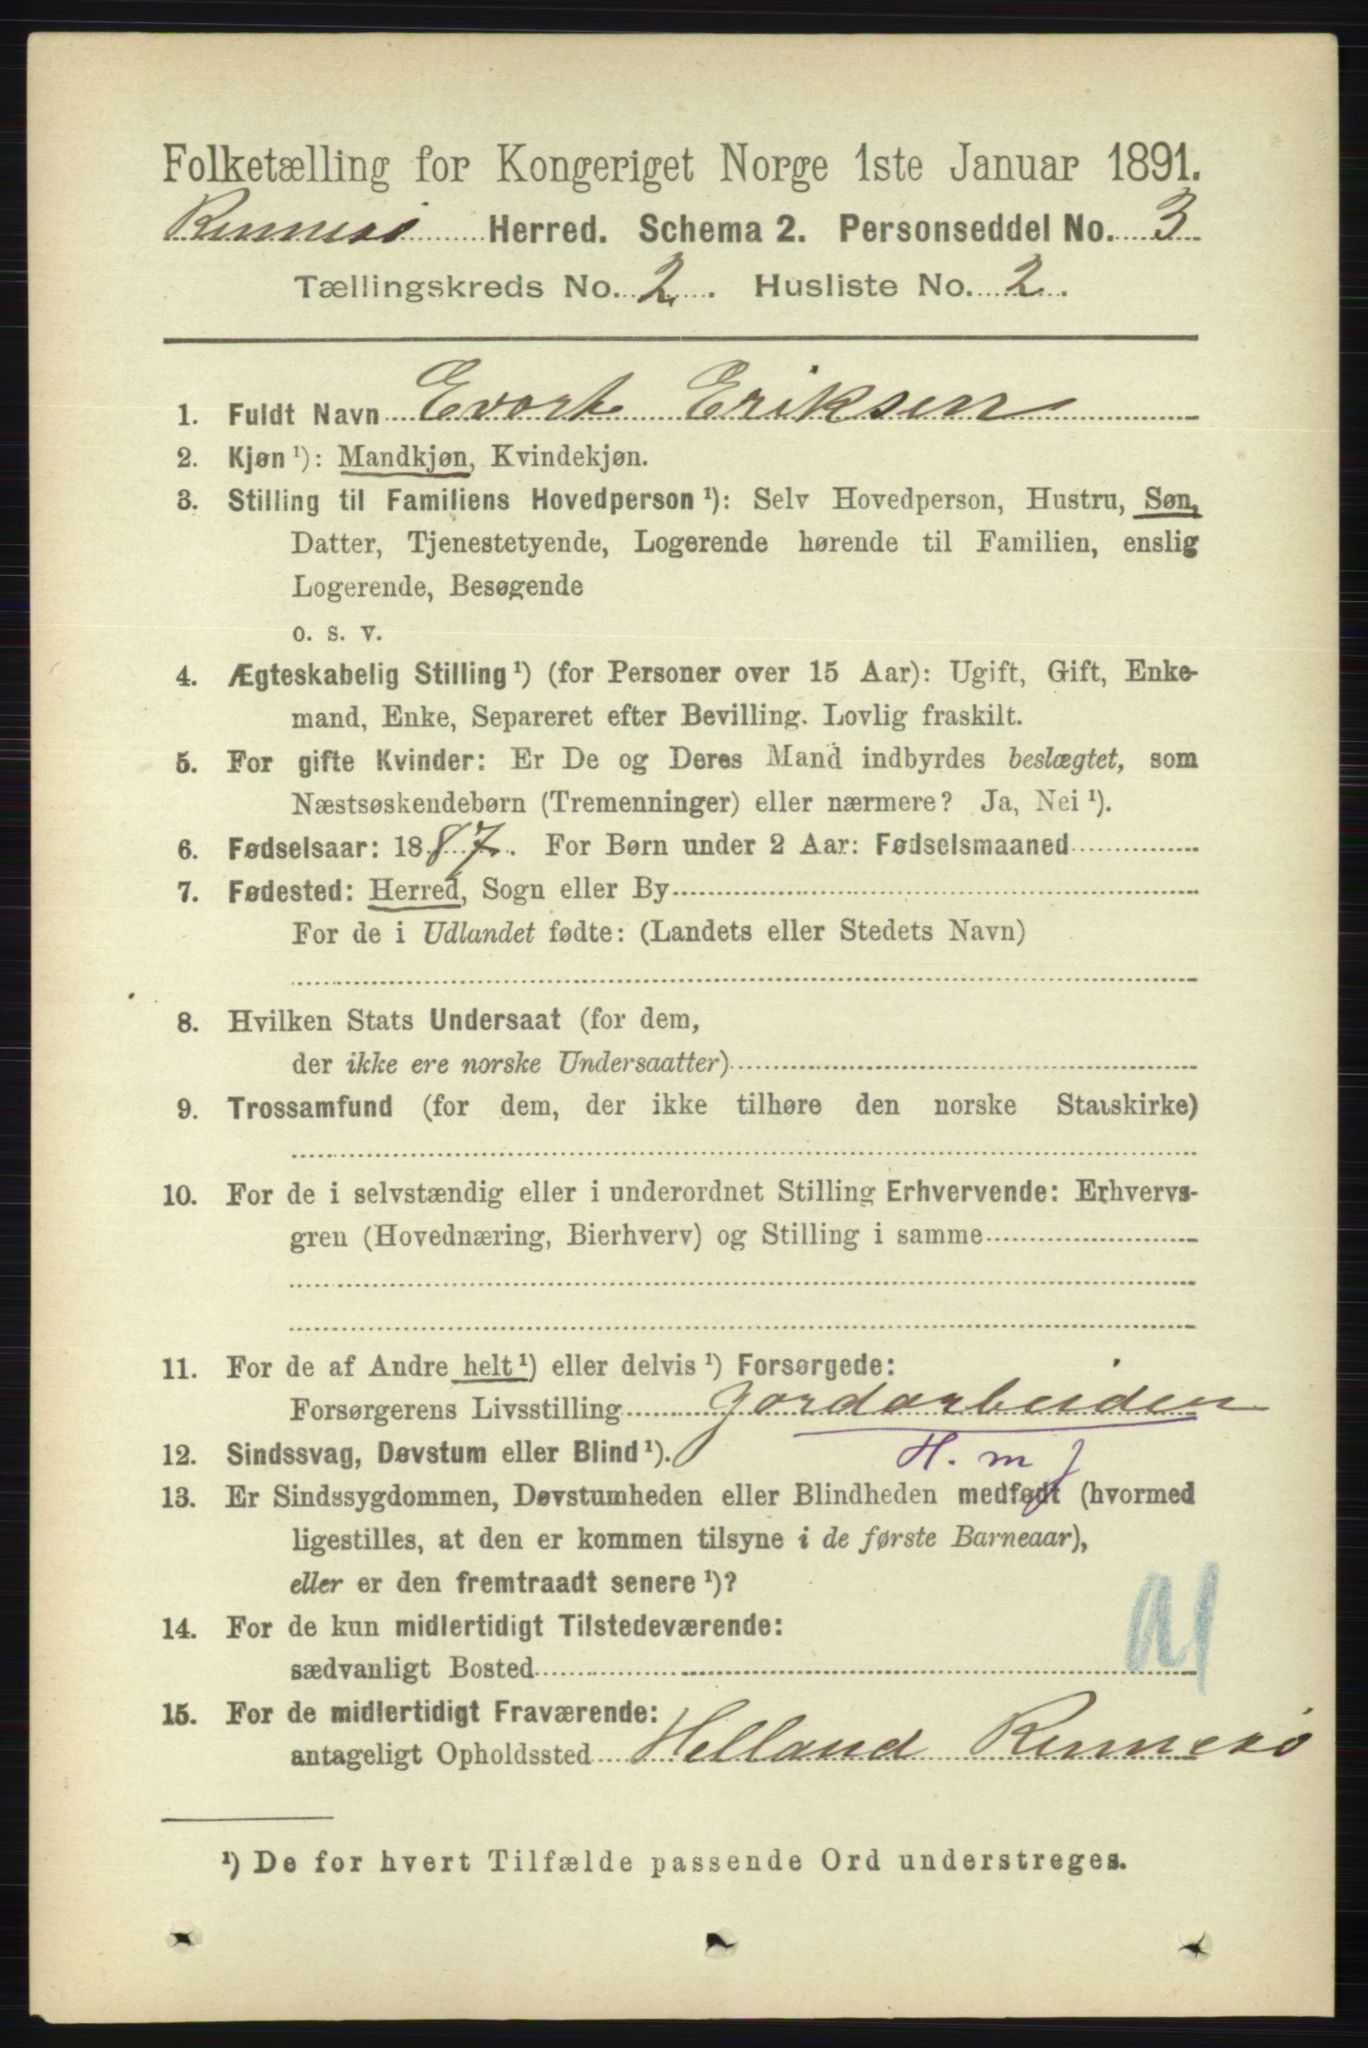 Folketælling for Kongeriget Norge 1ste Januar 1891.
Rennesø Herred. Schema 2. Personseddel No. 3
Tællingskreds No. 2. Husliste No. 2.
1. Fuldt Navn Evort Eriksen
2. Kjøn ¹): Mandkjøn, Kvindekjøn.
3. Stilling til Familiens Hovedperson ¹): Selv Hovedperson, Hustru, Søn,
Datter, Tjenestetyende, Logerende hørende til Familien, enslig
Logerende, Besøgende
o. s. v.
4. Ægteskabelig Stilling ¹) (for Personer over 15 Aar): Ugift, Gift, Enke-
mand, Enke, Separeret efter Bevilling. Lovlig fraskilt.
5. For gifte Kvinder: Er De og Deres Mand indbyrdes beslægtet, som
Næstsøskendebørn (Tremenninger) eller nærmere? Ja, Nei ¹).
6. Fødselsaar: 1887. For Børn under 2 Aar: Fødselsmaaned
7. Fødested: Herred, Sogn eller By
For de i Udlandet fødte: (Landets eller Stedets Navn)
8. Hvilken Stats Undersaat (for dem,
der ikke ere norske Undersaatter)
9. Trossamfund (for dem, der ikke tilhøre den norske Statskirke)
10. For de i selvstændig eller i underordnet Stilling Erhvervende: Erhvervs-
gren (Hovednæring, Bierhverv) og Stilling i samme
11. For de af Andre helt ¹) eller delvis ¹) Forsørgede:
Forsørgerens Livsstilling Jordarbeider
H. m J
12. Sindssvag, Døvstum eller Blind ¹).
13. Er Sindssygdommen, Døvstumheden eller Blindheden medfødt (hvormed
ligestilles, at den er kommen tilsyne i de første Barneaar),
eller er den fremtraadt senere ¹)?
14. For de kun midlertidigt Tilstedeværende:
sædvanligt Bosted
15. For de midlertidigt Fraværende:
antageligt Opholdssted Helland Rennesø
¹) De for hvert Tilfælde passende Ord understreges.